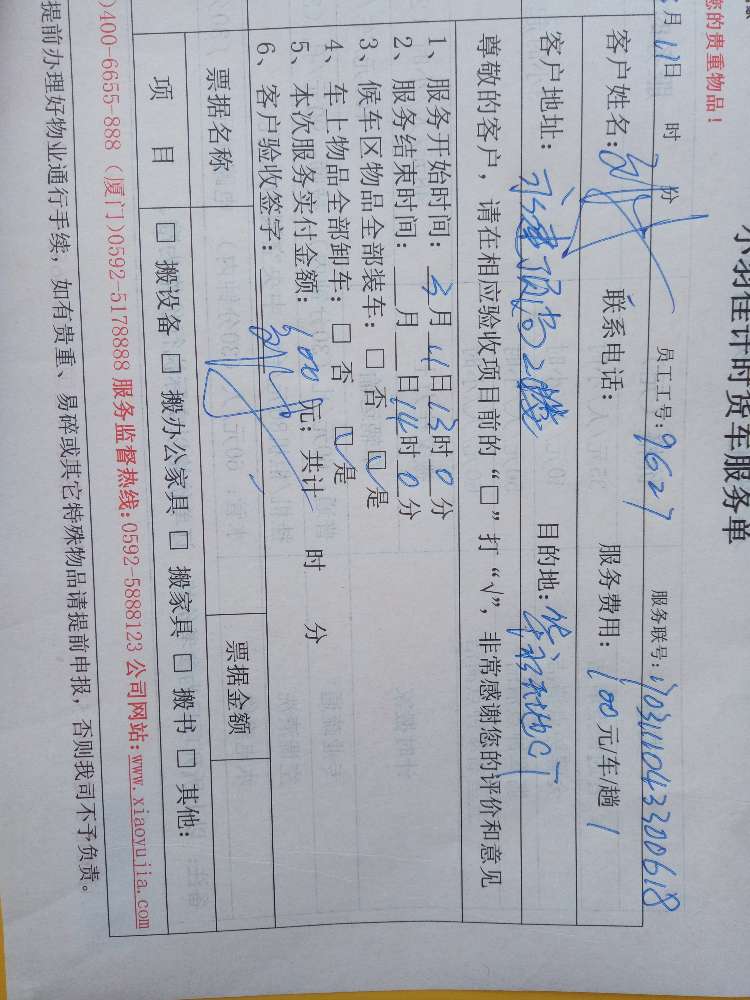 您的贵重物品！
小羽佳计时货车服务单
月11日 时 份 员工工号:9627 服务联号:
客户姓名: 联系电话: 服务费用:100元/车/趟
客户地址: 目的地:
尊敬的客户，请在相应验收项目前的“□”打“√”，非常感谢您的评价和意见
1、服务开始时间:3月11日13时0分
2、服务结束时间: 月 日14时0分
3、候车区物品全部装车:□ 否 ☑是
4、车上物品全部卸车:□ 否 ☑是
5、本次服务实付金额:600元;共计 时 分
6、客户验收签字:
票据名称 票据金额
项 目 □ 搬设备 □ 搬办公家具 □ 搬家具 □ 搬书 □ 其他:
)400-6655-888 (厦门)0592-5178888 服务监督热线:0592-5888123 公司网站:www.xiaoyujia.com
提前办理好物业通行手续，如有贵重、易碎或其它特殊物品请提前申报，否则我司不予负责。